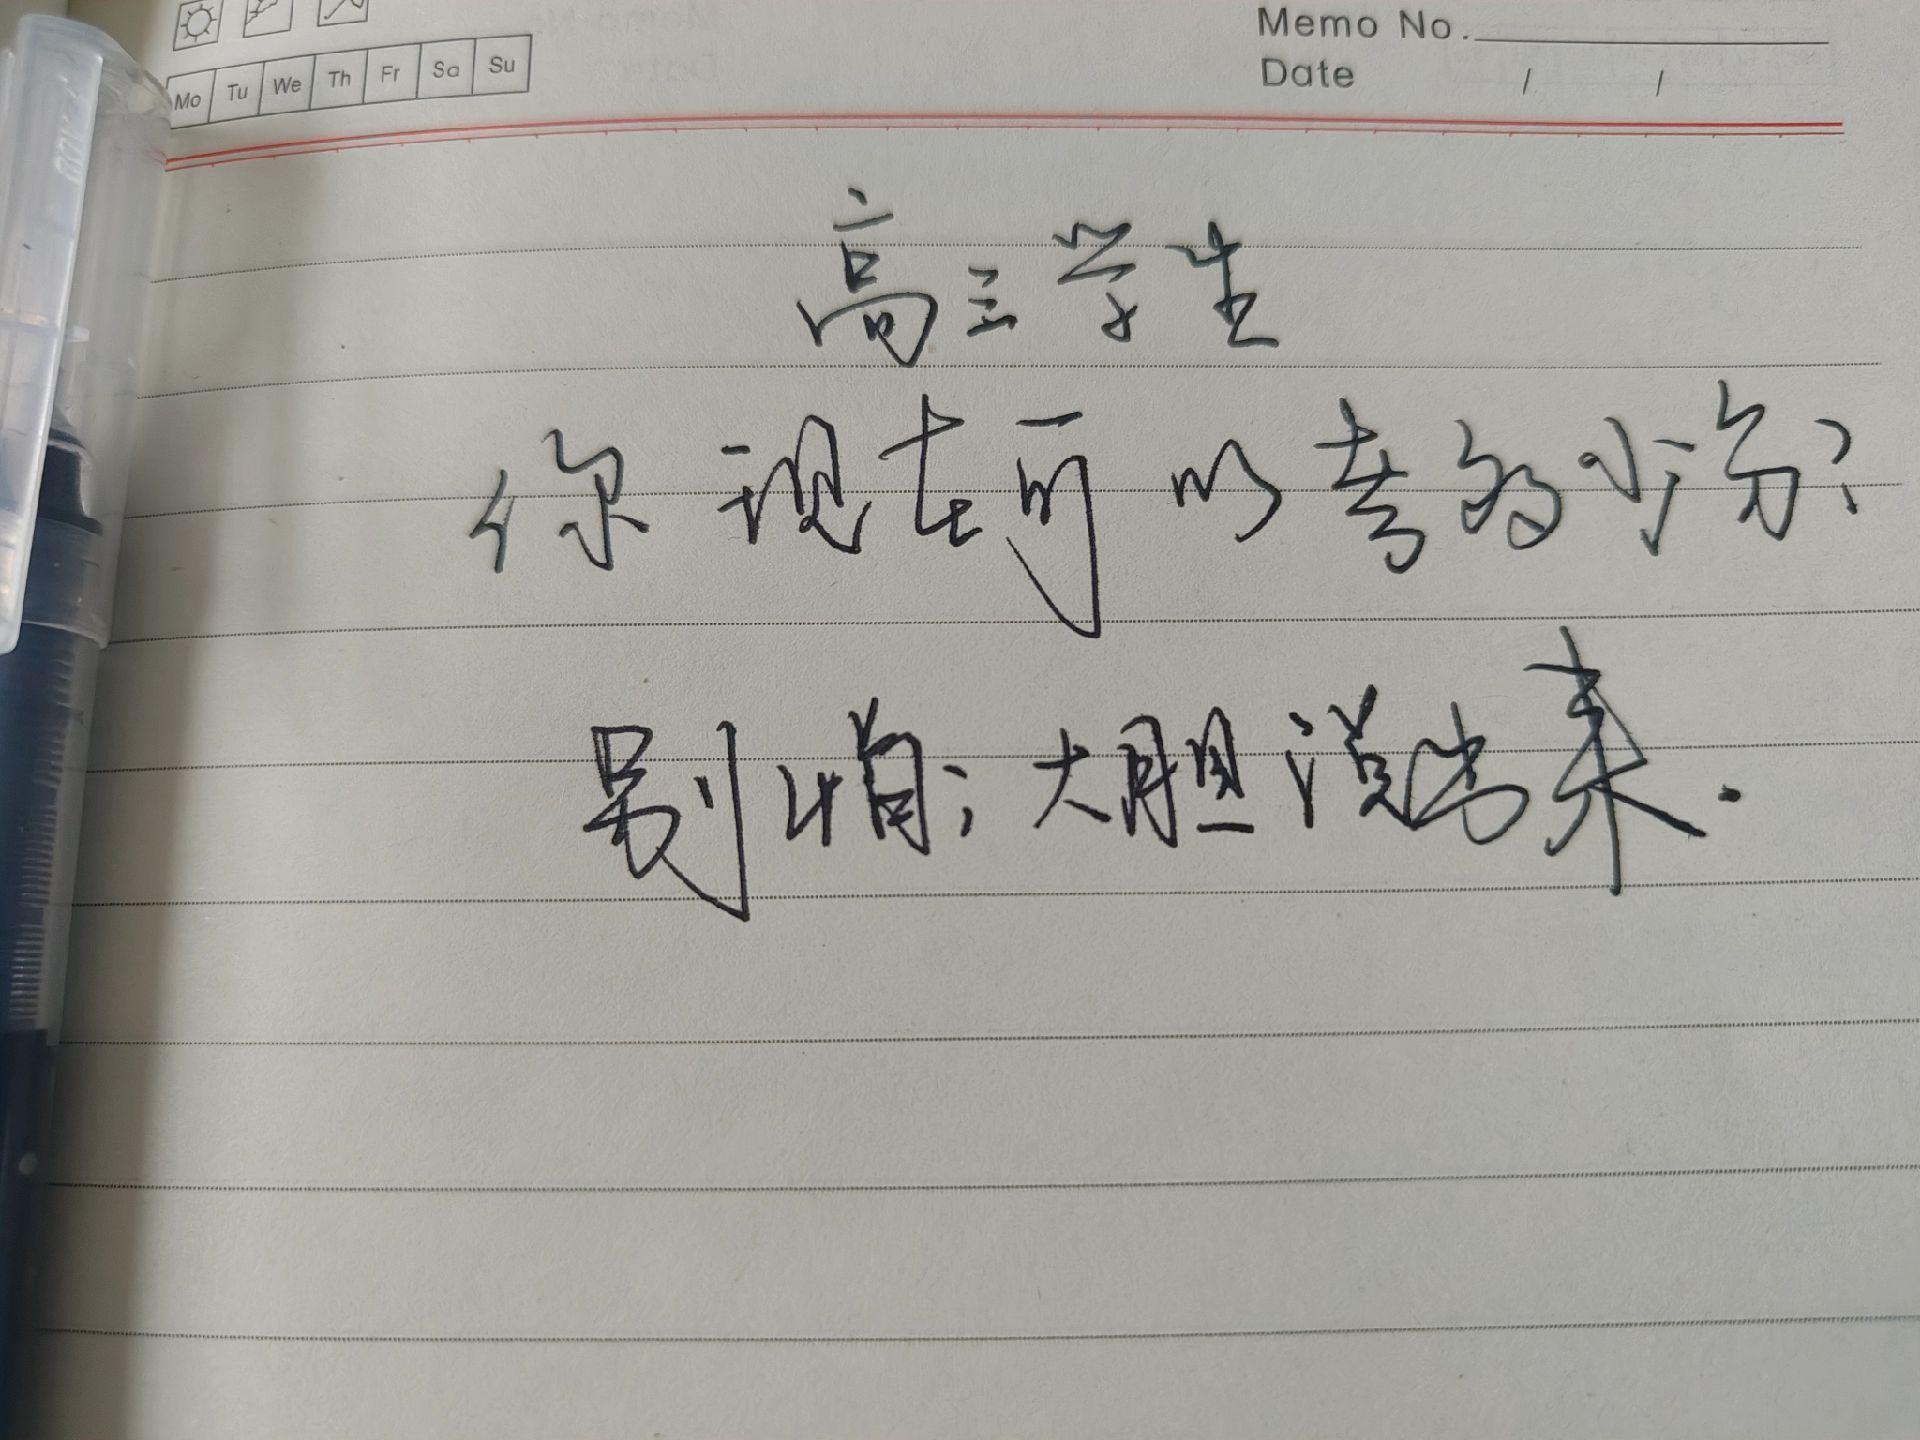 Memo No.
Mo Tu We Th Fr Sa Su
Date / /
高三学生
你现在可以考多少分?
别怕;大胆说出来.